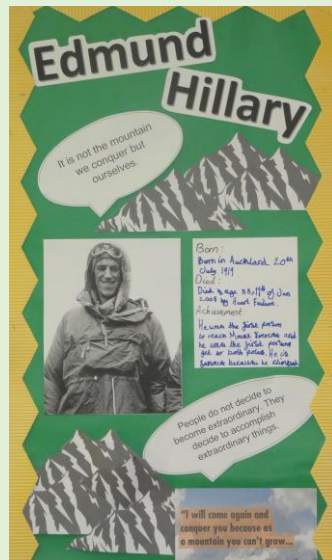 Edmund
Hillary
It is not the mountain
we conquer but
ourselves.
Born:
Born in Auckland 20th
July 1919
Died:
Died age 88, 11th of Jan
2008 by Heart Failure
Achievement
He was the first person
to reach Mount Everest and
he was the first person
get to both poles. He is
famous because he climbed
People do not decide to
become extraordinary. They
decide to accomplish
extraordinary things.
"I will come again and
conquer you because as
a mountain you can't grow...